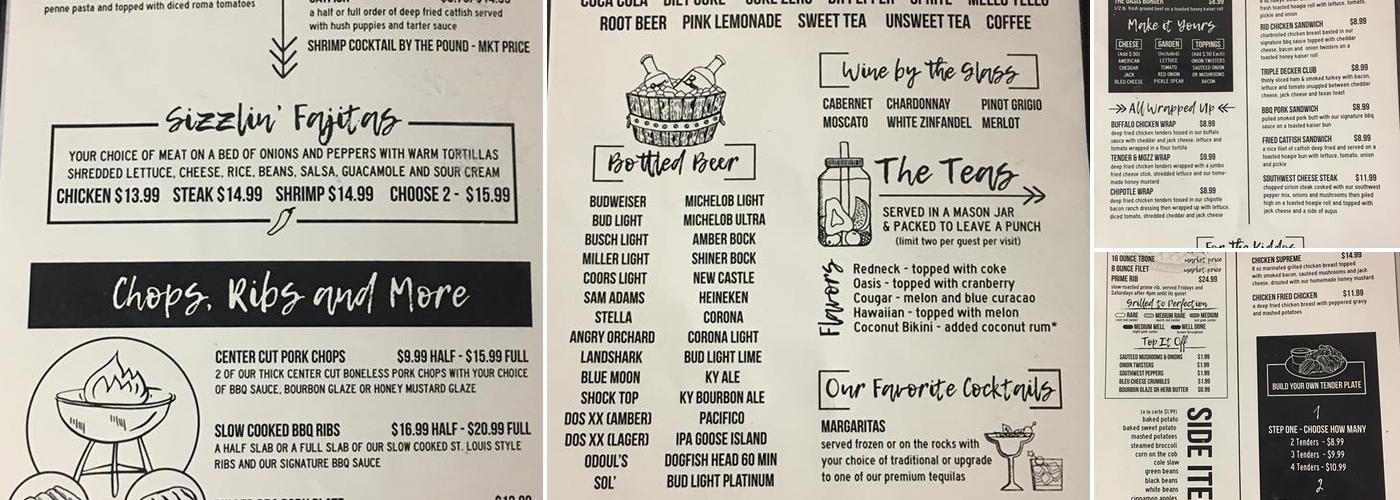 penne pasta and topped with diced roma tomatoes
a half or full order of deep fried catfish served
with hush puppies and tarter sauce
SHRIMP COCKTAIL BY THE POUND - MKT PRICE
Sizzlin' Fajitas
YOUR CHOICE OF MEAT ON A BED OF ONIONS AND PEPPERS WITH WARM TORTILLAS
SHREDDED LETTUCE, CHEESE, RICE, BEANS, SALSA, GUACAMOLE AND SOUR CREAM
CHICKEN $13.99 STEAK $14.99 SHRIMP $14.99 CHOOSE 2 - $15.99
Chops, Ribs and More
CENTER CUT PORK CHOPS $9.99 HALF - $15.99 FULL
2 OF OUR THICK CENTER CUT BONELESS PORK CHOPS WITH YOUR CHOICE
OF BBQ SAUCE, BOURBON GLAZE OR HONEY MUSTARD GLAZE
SLOW COOKED BBQ RIBS $16.99 HALF - $20.99 FULL
A HALF SLAB OR A FULL SLAB OF OUR SLOW COOKED ST. LOUIS STYLE
RIBS AND OUR SIGNATURE BBQ SAUCE
COCA COLA DIET COKE COKE ZERO DR PEPPER SPRITE MELLO YELLO
ROOT BEER PINK LEMONADE SWEET TEA UNSWEET TEA COFFEE
Bottled Beer
BUDWEISER MICHELOB LIGHT
BUD LIGHT MICHELOB ULTRA
BUSCH LIGHT AMBER BOCK
MILLER LIGHT SHINER BOCK
COORS LIGHT NEW CASTLE
SAM ADAMS HEINEKEN
STELLA CORONA
ANGRY ORCHARD CORONA LIGHT
LANDSHARK BUD LIGHT LIME
BLUE MOON KY ALE
SHOCK TOP KY BOURBON ALE
DOS XX (AMBER) PACIFICO
DOS XX (LAGER) IPA GOOSE ISLAND
ODOUL'S DOGFISH HEAD 60 MIN
SOL' BUD LIGHT PLATINUM
Wine by the Glass
CABERNET CHARDONNAY PINOT GRIGIO
MOSCATO WHITE ZINFANDEL MERLOT
The Teas
SERVED IN A MASON JAR
& PACKED TO LEAVE A PUNCH
(limit two per guest per visit)
Flavors
Redneck - topped with coke
Oasis - topped with cranberry
Cougar - melon and blue curacao
Hawaiian - topped with melon
Coconut Bikini - added coconut rum*
Our Favorite Cocktails
MARGARITAS
served frozen or on the rocks with
your choice of traditional or upgrade
to one of our premium tequilas
THE OASIS BURGER $8.99
1/2 lb. fresh ground beef on a toasted honey kaiser roll
Make it Yours
CHEESE GARDEN TOPPINGS
(Add $.50) (Included) (Add $.50 Each)
AMERICAN LETTUCE ONION TWISTERS
CHEDDAR TOMATO SAUTEED ONION
JACK RED ONION OR MUSHROOMS
BLEU CHEESE PICKLE SPEAR BACON
All Wrapped Up
BUFFALO CHICKEN WRAP $8.99
deep fried chicken tenders tossed in our buffalo
sauce with cheddar and jack cheese, lettuce and
tomato wrapped in a flour tortilla
TENDER & MOZZ WRAP $8.99
deep fried chicken tenders wrapped with a jumbo
fried cheese stick, shredded lettuce and our home-
made honey mustard
CHIPOTLE WRAP $8.99
deep fried chicken tenders tossed in our chipotle
bacon ranch dressing then wrapped up with lettuce,
diced tomato, shredded cheddar and jack cheese
fresh toasted hoagie roll with lettuce, tomato,
pickle and onion
RIO CHICKEN SANDWICH $8.99
charbroiled chicken breast basted in our
signature bbq sauce topped with cheddar
cheese, bacon and onion twisters on a
toasted honey kaiser roll
TRIPLE DECKER CLUB $8.99
thinly sliced ham & smoked turkey with bacon,
lettuce and tomato snuggled between cheddar
cheese, jack cheese and texas toast
BBQ PORK SANDWICH $8.99
pulled smoked pork butt with our signature bbq
sauce on a toasted kaiser bun
FRIED CATFISH SANDWICH $8.99
a nice filet of catfish deep fried and served on a
toasted hoagie bun with lettuce, tomato, onion
and pickle
SOUTHWEST CHEESE STEAK $11.99
chopped sirloin steak cooked with our southwest
pepper mix, onions and mushrooms then piled
high on a toasted hoagie roll and topped with
jack cheese and a side of aujus
For the Kiddos
16 OUNCE TBONE market price
8 OUNCE FILET market price
PRIME RIB $24.99
slow roasted prime rib, served Fridays and
Saturdays after 4pm until its gone!
Grilled to Perfection
RARE MEDIUM RARE MEDIUM
MEDIUM WELL WELL DONE
Top It Off
SAUTEED MUSROOMS & ONIONS $1.99
ONION TWISTERS $1.99
SOUTHWEST PEPPERS $1.99
BLEU CHEESE CRUMBLES $1.99
BOURBON GLAZE OR HERB BUTTER $0.99
(a la carte $1.99)
baked potato
baked sweet potato
mashed potatoes
steamed broccoli
corn on the cob
cole slaw
green beans
black beans
white beans
cinnamon apples
SIDE ITE
CHICKEN SUPREME $14.99
8 oz marinated grilled chicken breast topped
with smoked bacon, sauteed mushrooms and jack
cheese, drizzled with our homemade honey mustard
CHICKEN FRIED CHICKEN $11.99
a deep fried chicken breast with peppered gravy
and mashed potatoes
BUILD YOUR OWN TENDER PLATE
1
STEP ONE - CHOOSE HOW MANY
2 Tenders - $8.99
3 Tenders - $9.99
4 Tenders - $10.99
2